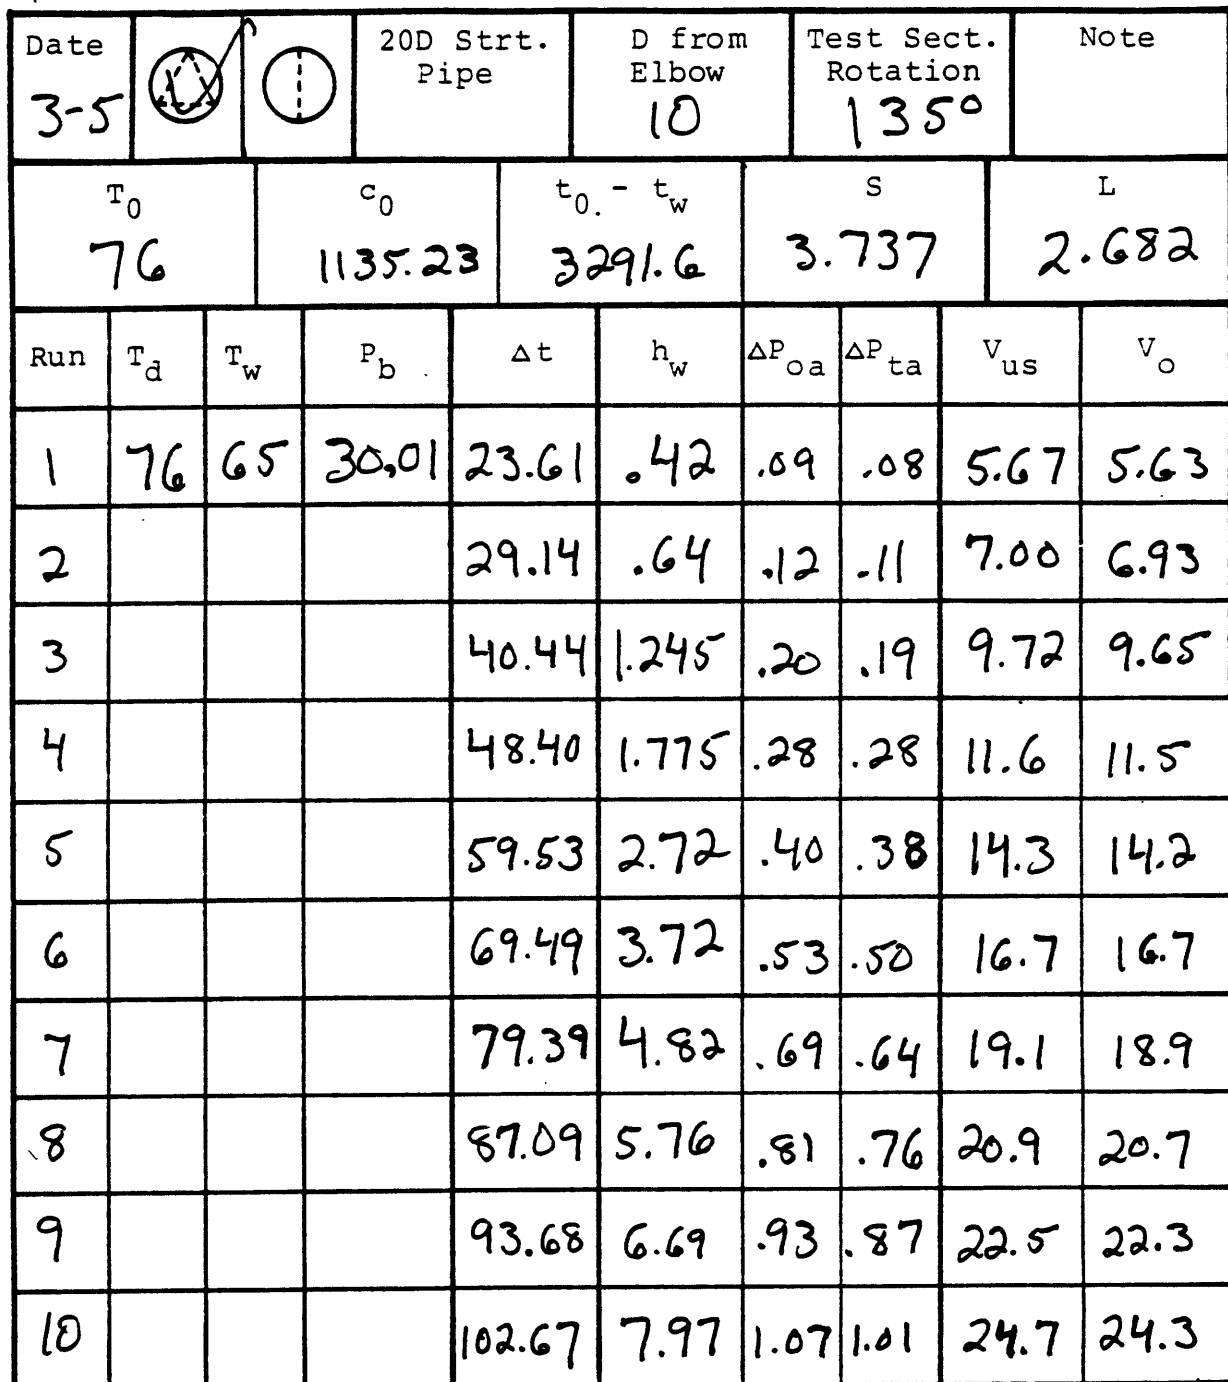 Date 20D Strt. D from Test Sect. Note
Pipe Elbow Rotation
3-5 10 135°
T0 c0 t0. - tw S L
76 1135.23 3291.6 3.737 2.682
Run Td Tw Pb Δt hw ΔPoa ΔPta Vus Vo
1 76 65 30.01 23.61 .42 .09 .08 5.67 5.63
2 29.14 .64 .12 .11 7.00 6.93
3 40.44 1.245 .20 .19 9.72 9.65
4 48.40 1.775 .28 .28 11.6 11.5
5 59.53 2.72 .40 .38 14.3 14.2
6 69.49 3.72 .53 .50 16.7 16.7
7 79.39 4.82 .69 .64 19.1 18.9
8 87.09 5.76 .81 .76 20.9 20.7
9 93.68 6.69 .93 .87 22.5 22.3
10 102.67 7.97 1.07 1.01 24.7 24.3